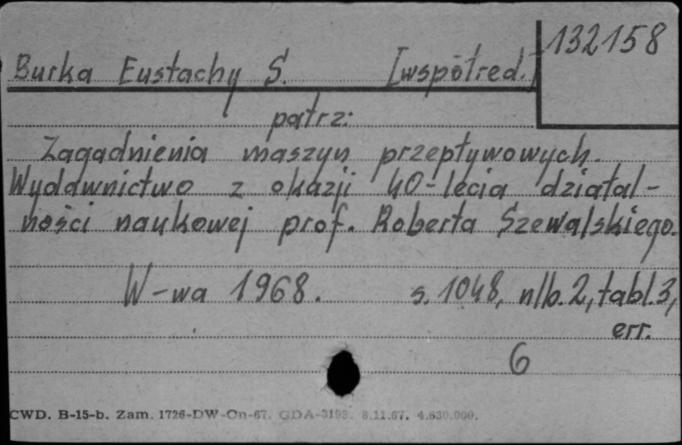 132158
Burka Eustachy S. [współred.]
patrz:
Zagadnienia maszyn przepływowych.
Wydawnictwo z okazji 40-lecia działal-
ności naukowej prof. Roberta Szewalskiego.
W-wa 1968. s. 1048, nlb. 2, tabl. 3,
err.
6
CWD. B-15-b. Zam. 1726-DW-On-67. GDA-3193. 8.11.67. 4.630.000.